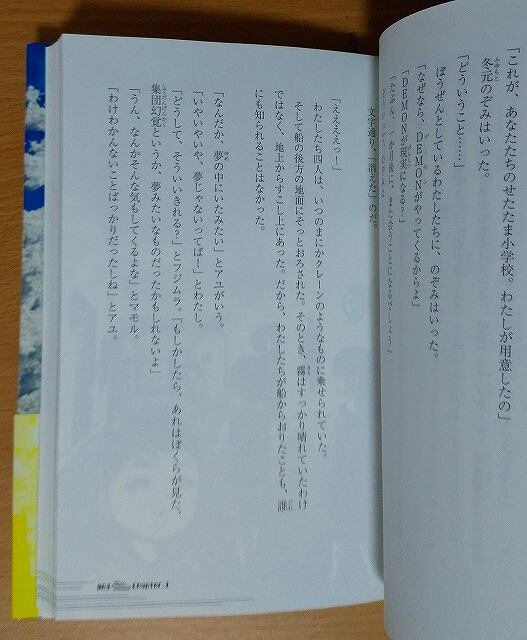 「これが、あなたたちのせたたま小学校。わたしが用意したの」
冬元のぞみはいった。
「どういうこと……」
ぼうぜんとしているわたしたちに、のぞみはいった。
「なぜなら、DEMONがやってくるからよ」
「DEMONが現実になる？」
「たぶん、一か月後に、また会うことになるでしょう」
文字通り、「消えた」のだ。
「ええええっ！」
わたしたち四人は、いつのまにかクレーンのようなものに乗せられていた。
そして船の後方の地面にそっとおろされた。そのとき、霧はすっかり晴れていたわけ
ではなく、地上からすこし上にあった。だから、わたしたちが船からおりたことも、誰
にも知られることはなかった。
「なんだか、夢の中にいたみたい」とアユがいう。
「いやいやいや、夢じゃないってば！」とわたし。
「どうして、そういいきれる？」とフジムラ。「もしかしたら、あれはぼくらが見た、
集団幻覚というか、夢みたいなものだったかもしれないよ」
「うん、なんかそんな気もしてくるよな」とマモル。
「わけわかんないことばっかりだったしね」とアユ。